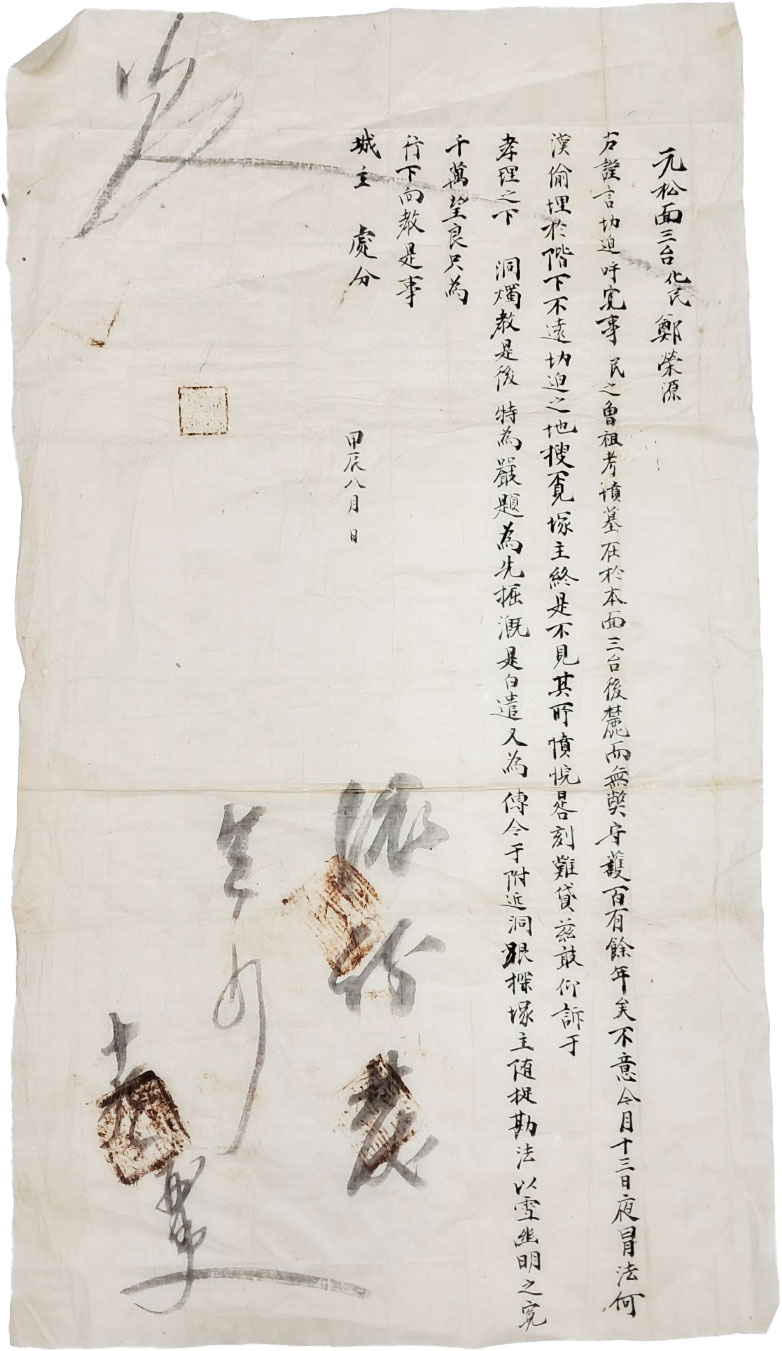 元松面三台化民鄭榮源
右謹言切迫呼寃事民之曾祖考墳墓在於本面三台後麓而無獘守護百有餘年矣不意今月十三日夜冒法何
漢偷埋於階下不遠切迫之地搜覓塚主終是不見其所憤惋晷刻難貸玆敢仰訴于
孝理之下 洞燭敎是後 特為嚴題為先掘漑是白遣又為傳令于附近洞跟探塚主随捉勘法以雪幽明之寃
千萬望良只為
行下向敎是事
城主 處分
甲辰八月 日